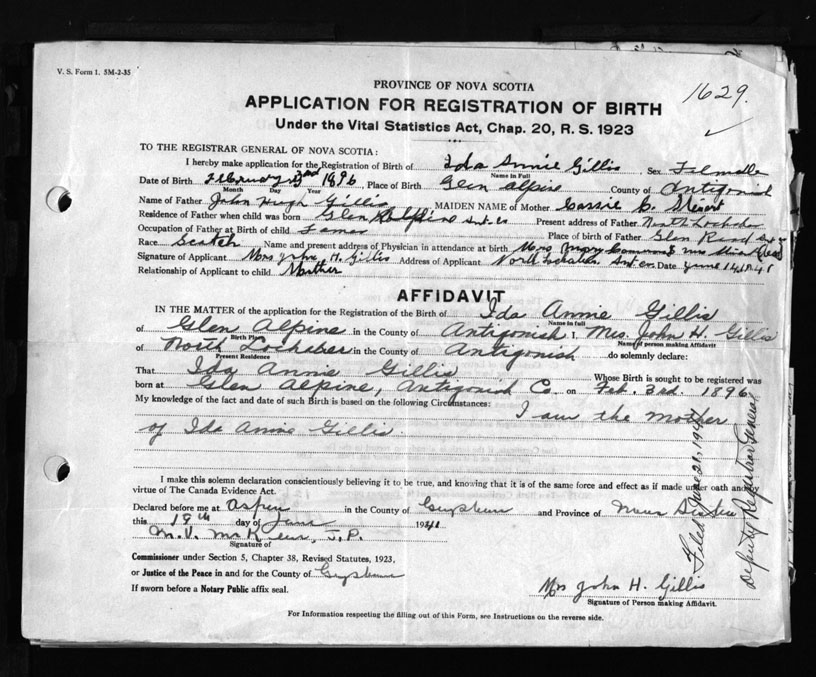 V. S. Form 1. 5M-2-35
1629.
PROVINCE OF NOVA SCOTIA
APPLICATION FOR REGISTRATION OF BIRTH
Under the Vital Statistics Act, Chap. 20, R. S. 1923
TO THE REGISTRAR GENERAL OF NOVA SCOTIA:
I hereby make application for the Registration of Birth of Ida Annie Gillis Sex
Name in Full
Date of Birth February 3rd 1896 Place of Birth Glen Alpine County of Antigonish
Month Day Year
Name of Father John Hugh Gillis MAIDEN NAME of Mother Cassie C.
Residence of Father when child was born Glen Alpine Ant. Co Present address of Father North Lochaber
Occupation of Father at Birth of child Place of birth of Father Glen Road
Race Scotch Name and present address of Physician in attendance at birth Mrs Mary
Signature of Applicant Mrs John H. Gillis Address of Applicant North Lochaber Ant. Co. Date June 14 1941
Relationship of Applicant to child Mother
AFFIDAVIT
IN THE MATTER of the application for the Registration of the Birth of Ida Annie Gillis
Name in full
of Glen Alpine in the County of Antigonish I, Mrs. John H. Gillis
Birth Place Name of person making Affidavit
of North Lochaber in the County of Antigonish do solemnly declare:
Present Residence
That Ida Annie Gillis Whose Birth is sought to be registered was
born at Glen Alpine, Antigonish Co. on Feb. 3rd. 1896
My knowledge of the fact and date of such Birth is based on the following Circumstances: I am the mother
of Ida Annie Gillis.
I make this solemn declaration conscientiously believing it to be true, and knowing that it is of the same force and effect as if made under oath and by
virtue of The Canada Evidence Act.
Declared before me at Aspen in the County of and Province of Nova Scotia
this 18th day of June 1941
M. V. J.P.
Signature of
Commissioner under Section 5, Chapter 38, Revised Statutes, 1923,
or Justice of the Peace in and for the County of
If sworn before a Notary Public affix seal.
Mrs John H. Gillis
Signature of Person making Affidavit.
For Information respecting the filling out of this Form, see Instructions on the reverse side.
Filed June 21, 1941
Deputy Registrar General